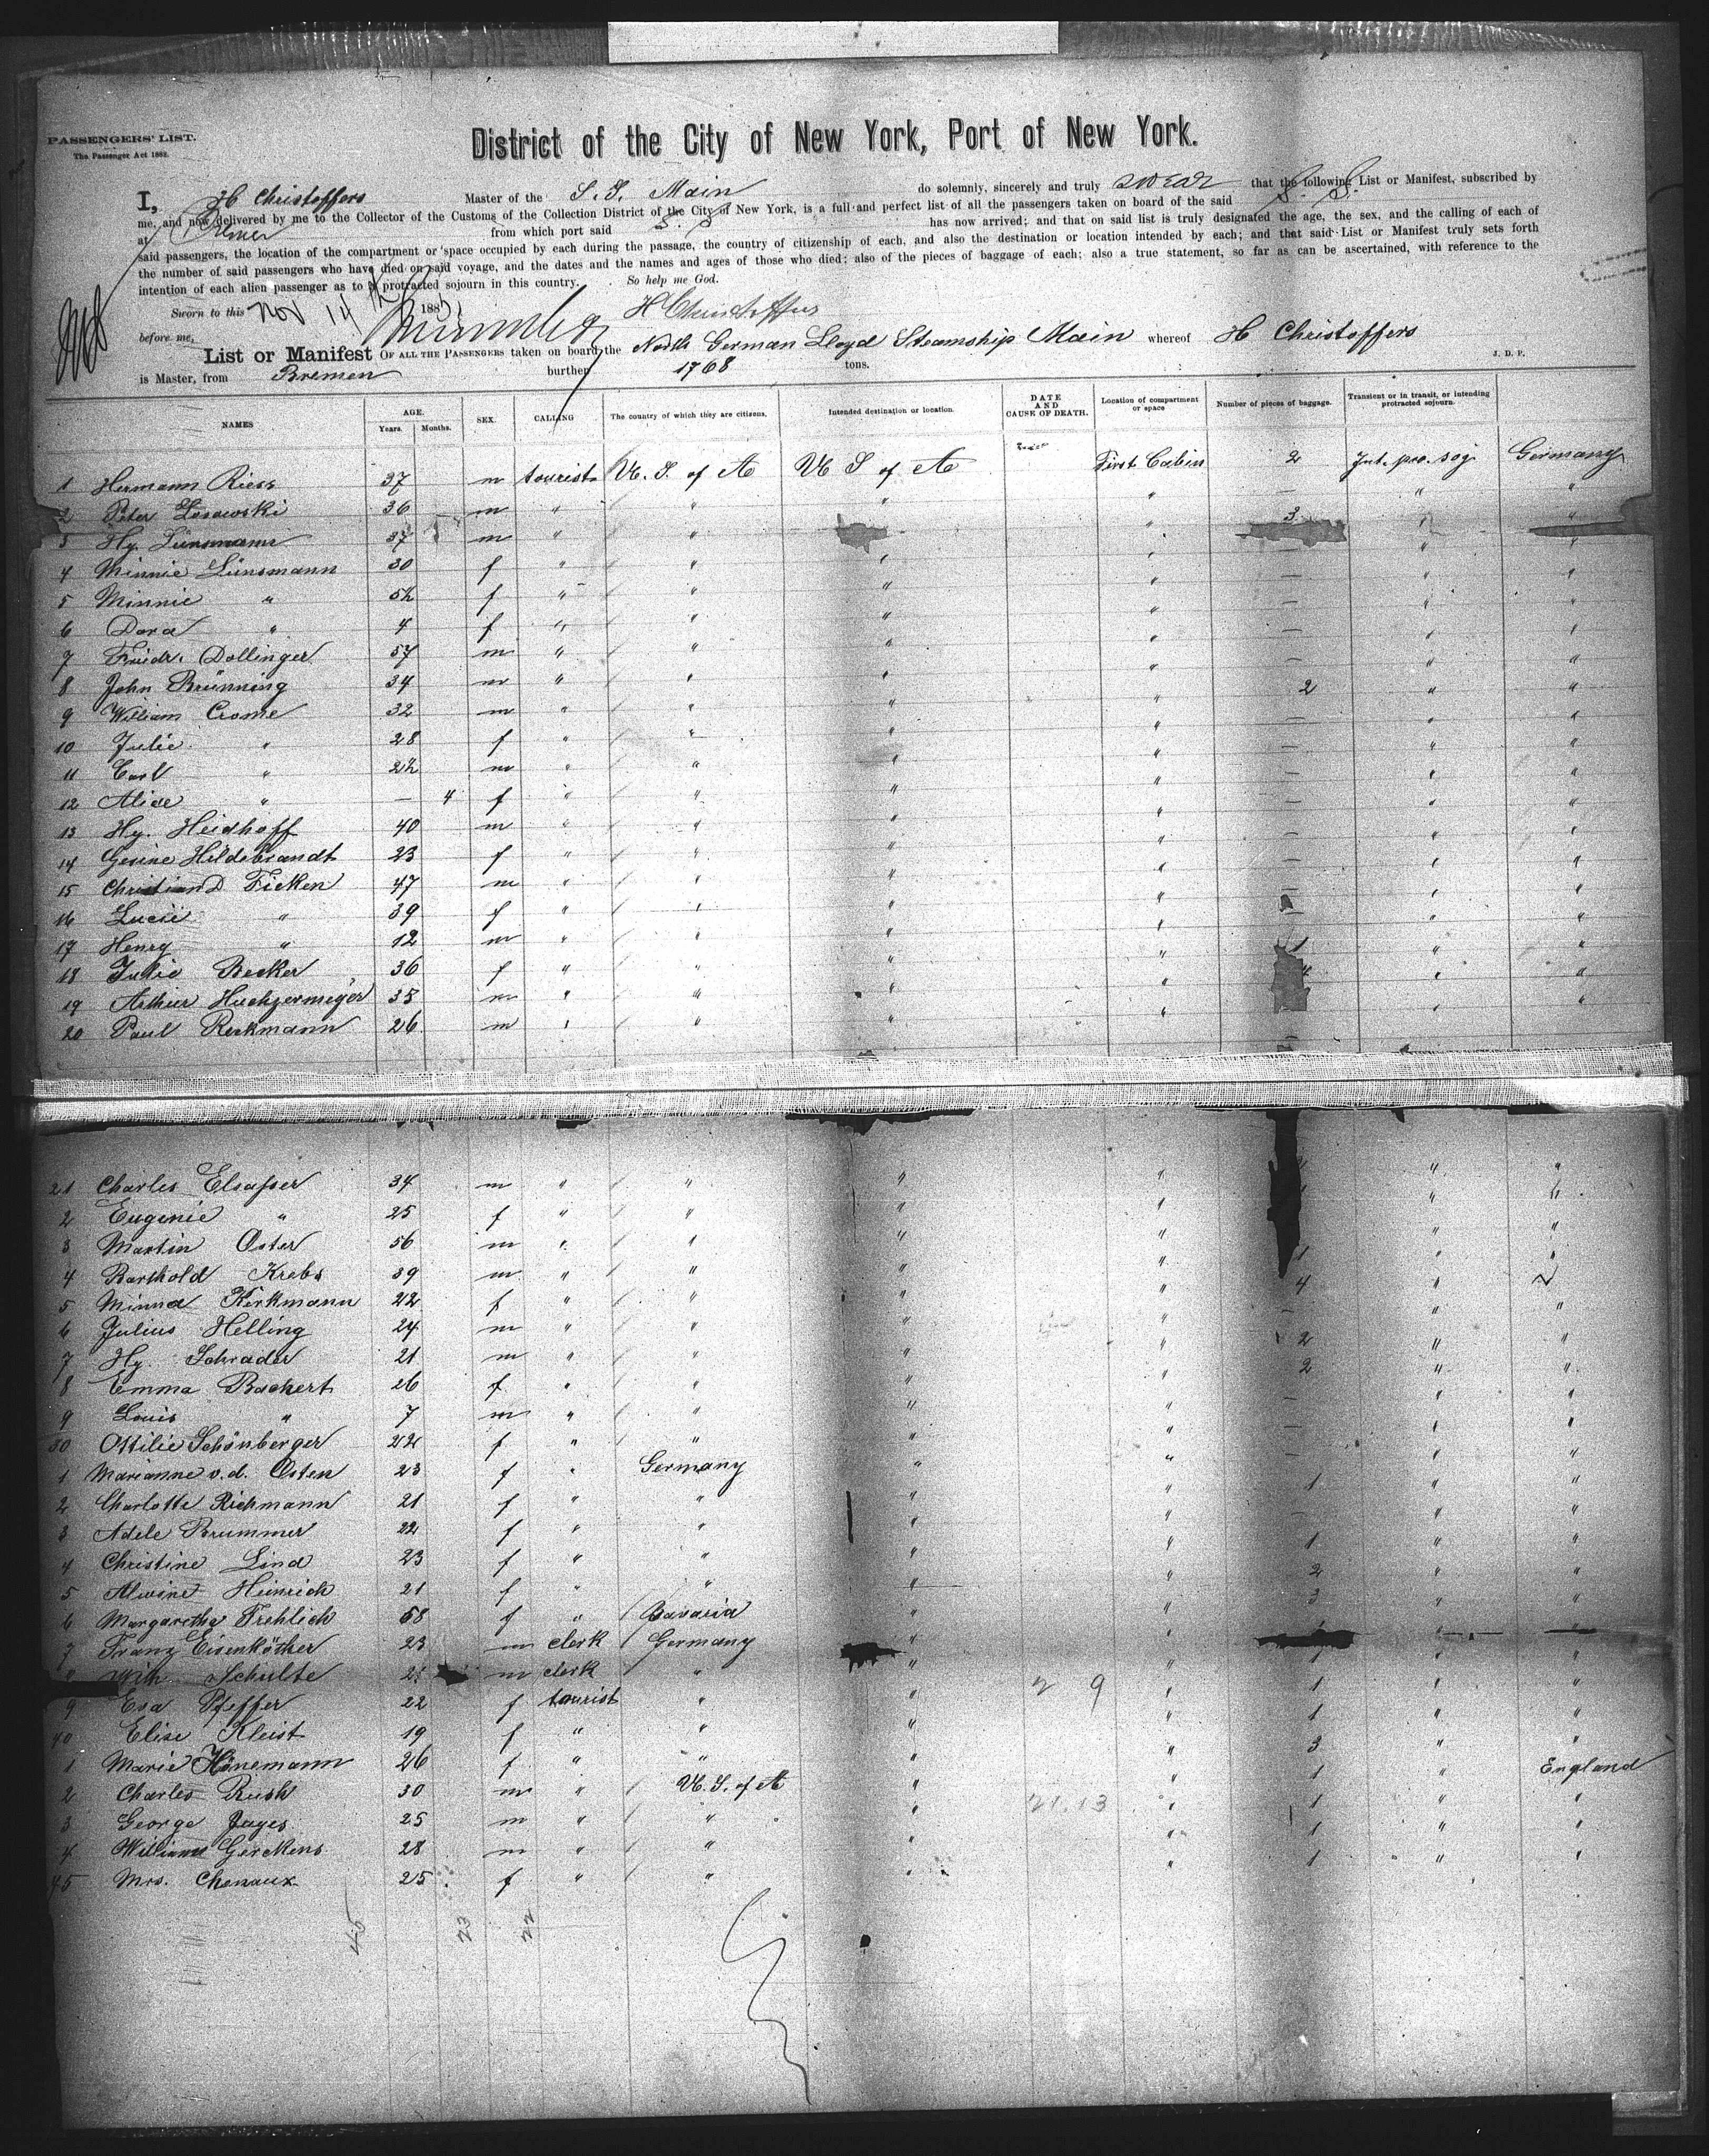 PASSENGERS' LIST.
The Passenger Act 1882.
District of the City of New York, Port of New York.
I, H Christoffers Master of the S. S. Main do solemnly, sincerely and truly swear that the following List or Manifest, subscribed by
me, and now delivered by me to the Collector of the Customs of the Collection District of the City of New York, is a full and perfect list of all the passengers taken on board of the said S. S.
at Bremen from which port said S. S. has now arrived; and that on said list is truly designated the age, the sex, and the calling of each of
said passengers, the location of the compartment or space occupied by each during the passage, the country of citizenship of each, and also the destination or location intended by each; and that said List or Manifest truly sets forth
the number of said passengers who have died on said voyage, and the dates and the names and ages of those who died; also of the pieces of baggage of each; also a true statement, so far as can be ascertained, with reference to the
intention of each alien passenger as to a protracted sojourn in this country. So help me God.
Sworn to this Nov 14th 188
before me, H Christoffers
List or Manifest OF ALL THE PASSENGERS taken on board the North German Lloyd Steamship Main whereof H Christoffers
is Master, from Bremen burthen 1768 tons. J. D. P.
NAMES AGE. Years. Months. SEX. CALLING The country of which they are citizens. Intended destination or location. DATE AND CAUSE OF DEATH. Location of compartment or space Number of pieces of baggage. Transient or in transit, or intending protracted sojourn.
1 Hermann Riess 37 m tourist U. S. of A U S of A First Cabin 2 Int. pro. soj. Germany
2 Peter Losowski 36 m " " " " 3 " "
3 Hy. Lünsmann 37 m " " " " "
4 Minnie Lünsmann 30 f " " " " — " "
5 Minnie " 5½ f " " " " — " "
6 Dora " 4 f " " " " — " "
7 Friedr. Dollinger 57 m " " " " — " "
8 John Brünning 34 m " " " " 2 " "
9 William Crome 32 m " " " " — " "
10 Julie " 28 f " " " " — " "
11 Carl " 2½ m " " " " — " "
12 Alice " — 4 f " " " " — " "
13 Hy. Heidhoff 40 m " " " " — " "
14 Gesine Hildebrandt 23 f " " " " — " "
15 Christian D Ficken 47 m " " " " — " "
16 Lucie " 39 f " " " " " "
17 Henry " 12 m " " " " 1 " "
18 Julie Becker 36 f " " " " 4 " "
19 Arthur Huchzermeyer 35 m " " " " " "
20 Paul Reckmann 26 m " " " "
21 Charles Elsasser 34 m " " " " " "
2 Eugenie " 25 f " " " " " "
3 Martin Oster 56 m " " " " " "
4 Barthold Krebs 39 m " " " " 1 " "
5 Minna Kirkmann 22 f " " " " 4 "
6 Julius Helling 24 m " " " " — " "
7 Hy. Schrader 21 m " " " " 2 " "
8 Emma Bachert 26 f " " " " 2 " "
9 Louis " 7 m " " " " — " "
30 Ottilie Schönberger 22 f " " " " — " "
1 Marianne v. d. Osten 23 f " Germany " " — " "
2 Charlotte Richmann 21 f " " " " 1 " "
3 Adele Brummer 22 f " " " " — " "
4 Christine Lind 23 f " " " " 1 " "
5 Alwine Heinrich 21 f " " " " 2 " "
6 Margaretha Frehlich 58 f " Bavaria " " 3 " "
7 Franz Eisenköther 23 m clerk Germany " " 1 " "
Wilh. Schulte 2 m clerk " " " 1 " "
9 Esa Pfeffer 22 f tourist " " " 1 " "
40 Elise Kleist 19 f " " " " 1 " "
1 Marie Hönemann 26 f " " " " 3 " "
2 Charles Rush 30 m " U. S. of A " " 1 " England
3 George Jayes 25 m " " " " 1 " "
4 William Gerckens 28 m " " " " 1 " "
45 Mrs. Chenaux 25 f " " " " 1 " "
2 9
21.13
45 23 22